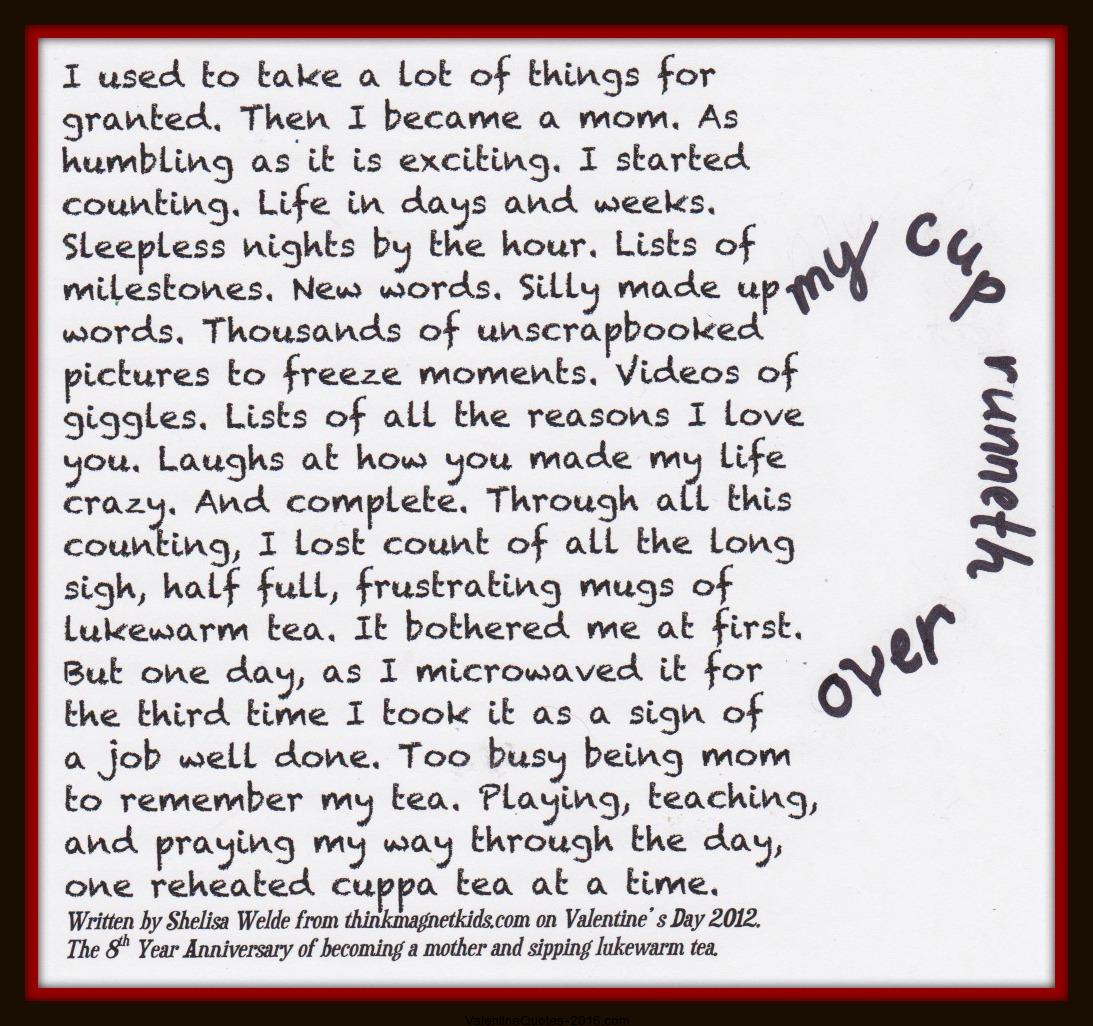 I used to take a lot of things for
granted. Then I became a mom. As
humbling as it is exciting. I started
counting. Life in days and weeks.
Sleepless nights by the hour. Lists of
milestones. New words. Silly made up
words. Thousands of unscrapbooked
pictures to freeze moments. Videos of
giggles. Lists of all the reasons I love
you. Laughs at how you made my life
crazy. And complete. Through all this
counting, I lost count of all the long
sigh, half full, frustrating mugs of
lukewarm tea. It bothered me at first.
But one day, as I microwaved it for
the third time I took it as a sign of
a job well done. Too busy being mom
to remember my tea. Playing, teaching,
and praying my way through the day,
one reheated cuppa tea at a time.
Written by Shelisa Welde from thinkmagnetkids.com on Valentine's Day 2012.
The 8th Year Anniversary of becoming a mother and sipping lukewarm tea.
my cup runneth over
ValentineQuotes-2016.com